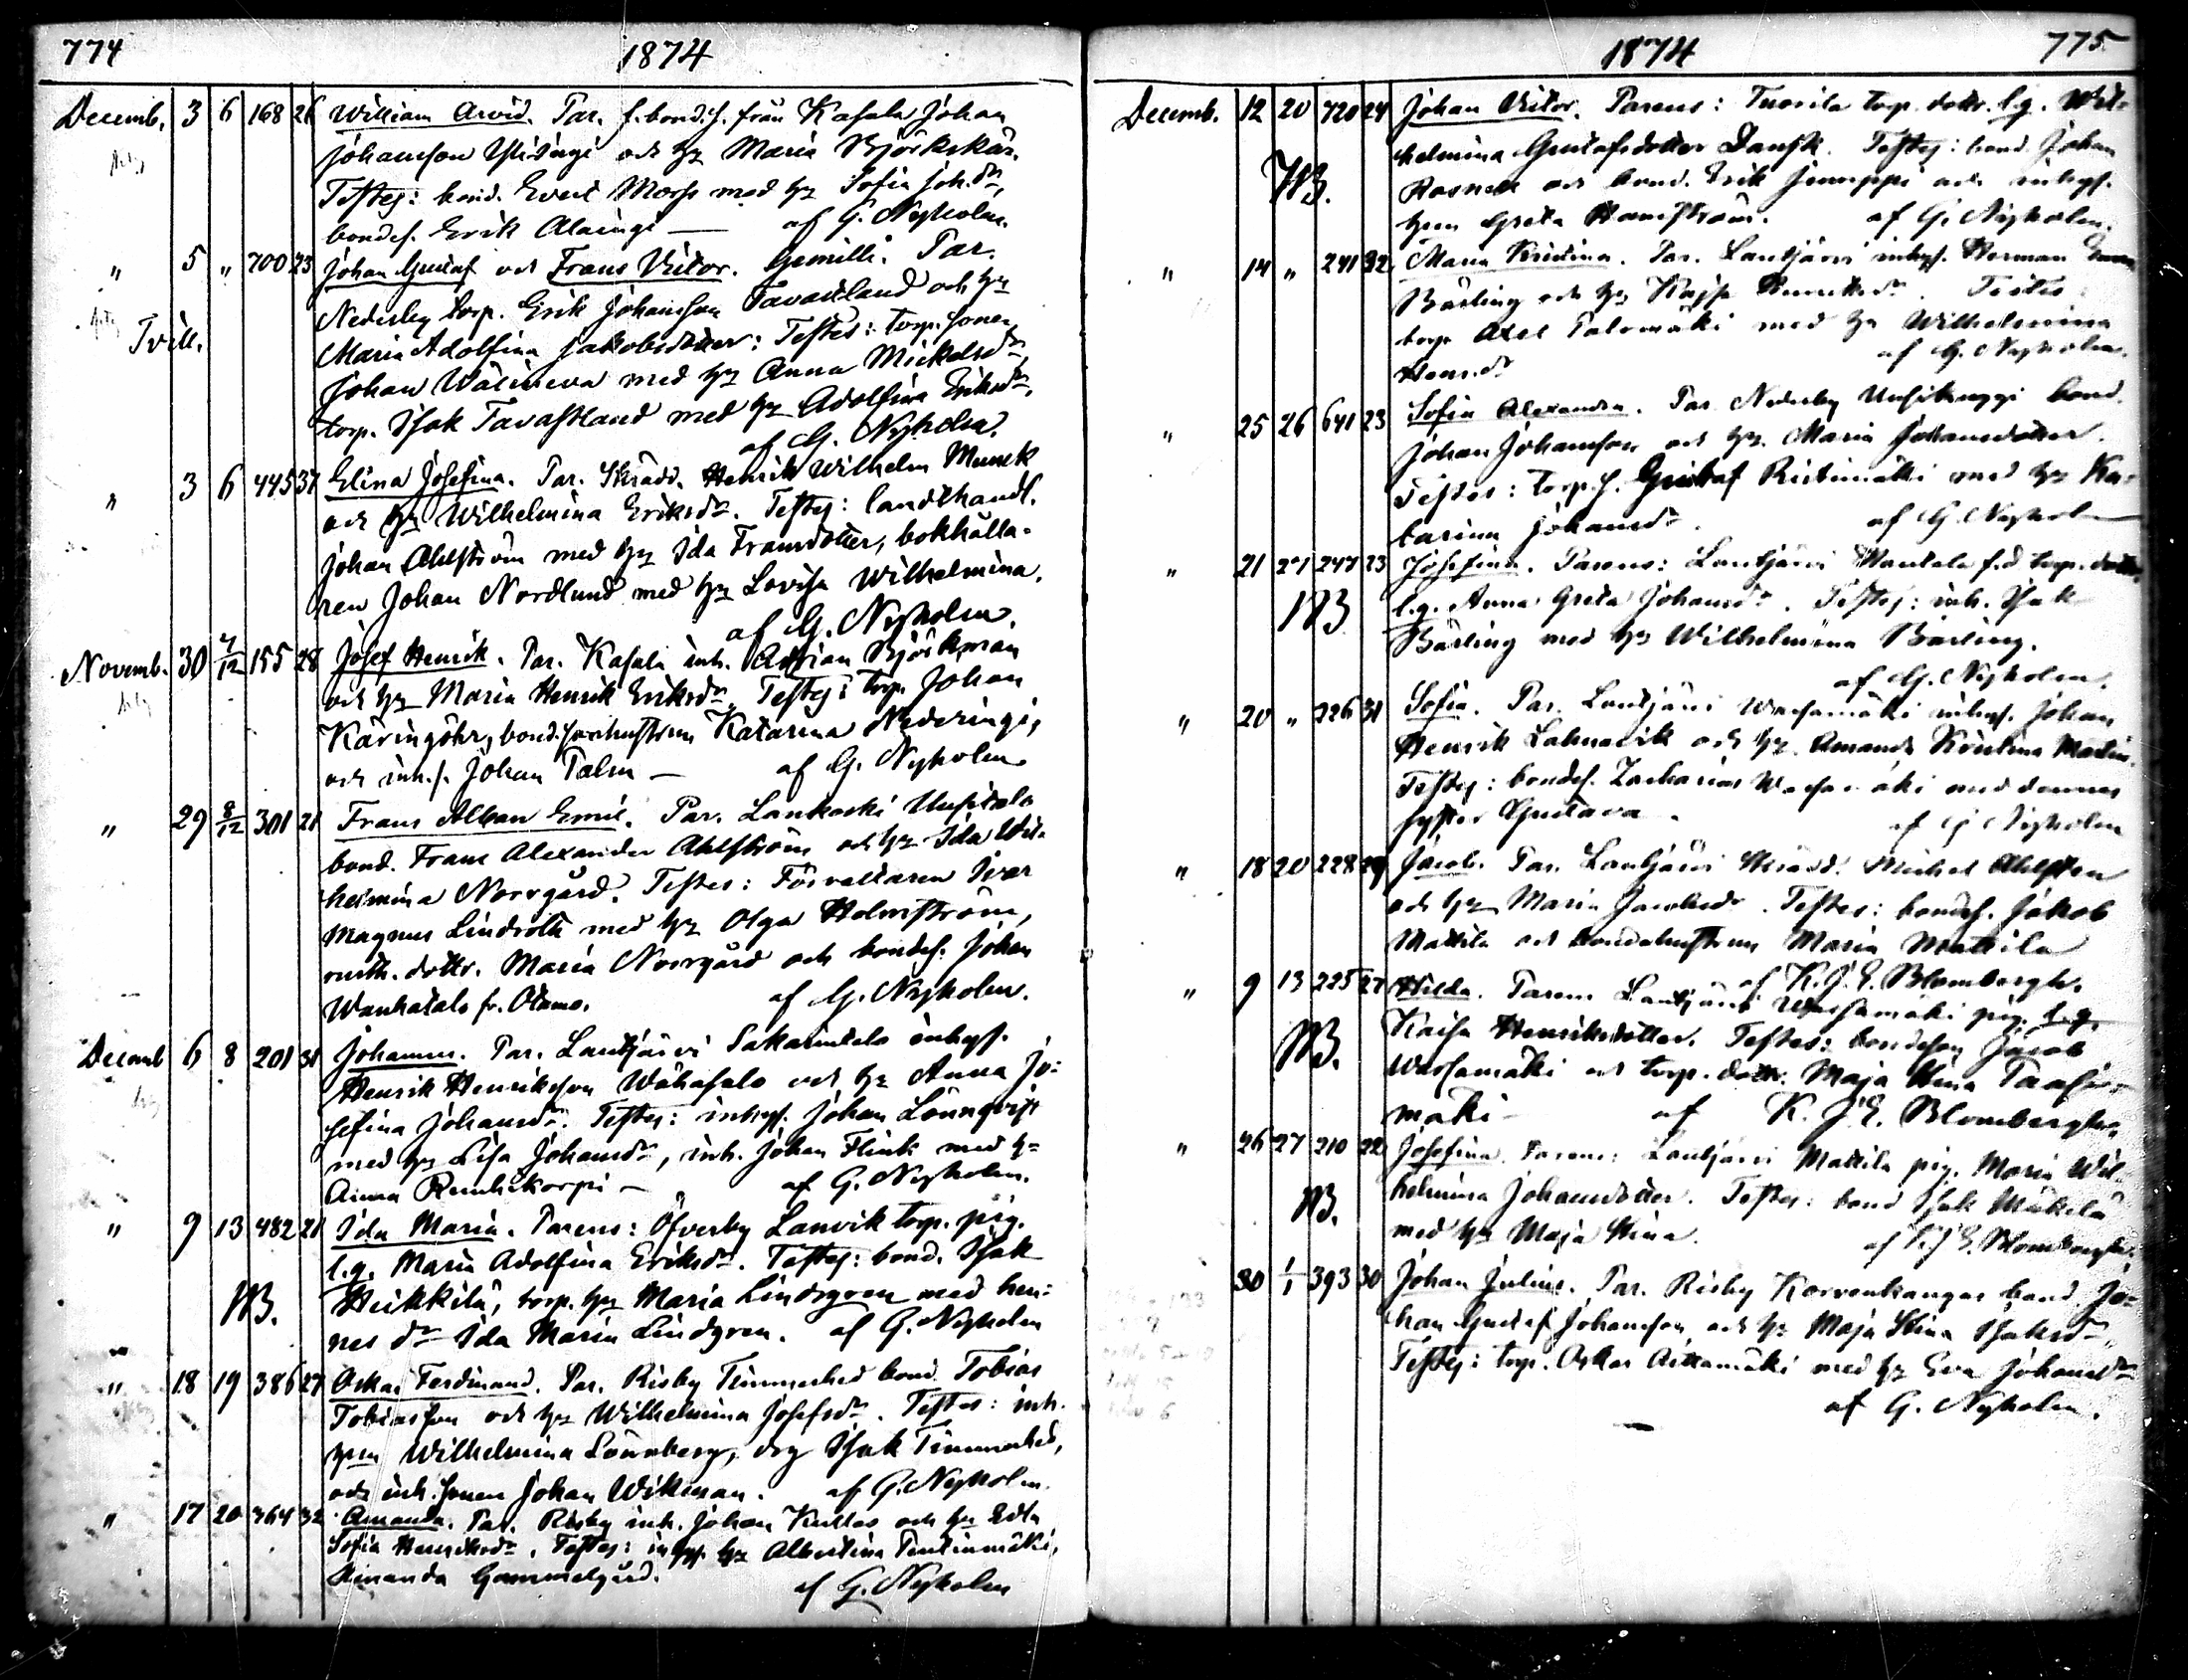 774 1874
Decemb. 3 6 168 26 William Arvid. Par. f. bond. s. från Kasala Johan
Johansson Yliingi och h: Maria Björkskär.
Testes: bond. Evert Morss med h: Sofia Joh.dr,
bondes. Erik Alaingi — af G. Nyholm.
" 5 " 700 23 Johan Gustaf och Frans Victor. Gemilli. Par.
Nederby torp. Erik Johansson Tavastland och h:
Tvill. Maria Adolfina Jakobsdotter: Testes: torp. sonen
Johan Wälineva med h: Anna Mickelsdr,
torp. Isak Tavastland med h: Adolfina Eriksdr.
af G. Nyholm.
" 3 6 445 37 Elina Josefina. Par. Skrädd. Henrik Wilhelm Munck
och h: Wilhelmina Eriksdr. Testes: landthandl.
Johan Ahlström med h: Ida Fransdotter, bokhålla-
ren Johan Nordlund med h: Lovisa Wilhelmina.
af G. Nyholm.
Novemb. 30 7/12 155 28 Josef Henrik. Par. Kasala inh. Adrian Björkman
och h: Maria Henrik Eriksdr. Testes: torp. Johan
Käringöhr, bond. hustrun Katarina Nederingi,
och inh.s. Johan Palm — af G. Nyholm.
" 29 8/12 301 21 Frans Alban Emil. Par. Lankoski Uusitalo
bond. Frans Alexander Ahlström och h: Ida Wil-
helmina Norrgård. Testes: Förvaltaren Ivar
Magnus Lindroth med h: Olga Holmström,
rusth. dottr. Maria Norrgård och bondes. Johan
Wanhatalo fr. Otamo. af G. Nyholm.
Decemb 6 8 201 31 Johannes. Par. Lautjärvi Sakarintalo inhys.
Henrik Henriksson Wähäsalo och h: Anna Jo-
sefina Johansdr. Testes: inhys. Johan Lönnqvist
med h: Lisa Johansdr, inh. Johan Flink med h:
Anna — af G. Nyholm.
" 9 13 482 21 Ida Maria. Parens: Öfverby Lanvik torp. pig.
l.g. Maria Adolfina Eriksdr. Testes: bond. Isak
NB. Heikkilä, torp. h: Maria Lindgren med hen-
nes dr Ida Maria Lindgren. af G. Nyholm
" 18 19 386 27 Oskar Ferdinand. Par. Risby Timmerhed bond. Tobias
Tobiasson och h: Wilhelmina Josefsdr. Testes: inh.
Wilhelmina Lönnberg, drg Isak Timmerhed,
och inh. sonen Johan Wikman. af G. Nyholm.
" 17 20 364 32 Amanda. Par. Risby inh. Johan Kullas och h: Edla
Sofia Henriksdr. Testes: h: Albertina Pentinmäki,
Amanda Gammelgård. af G. Nyholm
1874 775
Decemb. 12 20 720 24 Johan Victor. Parens: Tuorila torp. dottr. l.g. Wil-
helmina Gustafsdotter Dansk. Testes: bond. Johan
NB. Rosnell och bond. Erik Junuppi och inhys.
Greta Hamström. af G. Nyholm.
" 14 " 241 32 Maria Kristina. Par. Lautjärvi inhys. Herman
Bärling och h: Kajsa Henriksdr. Testes:
torp. Axel Palomäki med h: Wilhelmina
Hensdr af G. Nyholm.
" 25 26 641 23 Sofia Alexandra. Par. Nederby Uusikauppi bond.
Johan Johansson och h: Maria Johansdotter.
Testes: torp. s. Gustaf Ristimäki med h: Ka-
tarina Johansdr af G. Nyholm
" 21 27 247 23 Josefina. Parens: Lautjärvi f.d. torp. dottr.
NB l.g. Anna Greta Johansdr. Testes: inh. Isak
Bärling med h: Wilhelmina Bärling.
af G. Nyholm.
" 20 " 226 31 Sofia. Par. Lautjärvi Warsamäki inhys. Johan
Henrik Lahnavik och h: Amanda Kristina
Testes: bondes. Zacharias Warsamäki med dennes
syster Gustava. af G. Nyholm
" 18 20 228 29 Jacob. Par. Lautjärvi Skrädd. Michel Ahlsten
och h: Maria Jacobsdr. Testes: bondes. Jakob
Mattila och bondehustrun Maria Mattila
af K. J. E. Blombergh.
" 9 13 225 27 Hilda. Parens Lautjärvi Warsamäki pig. l.g.
NB. Kaisa Henriksdotter. Testes: bondeson Jacob
Warsamäki och torp. dottr. Maja Stina
mäki — af K. J. E. Blombergh.
" 26 27 210 22 Josefina. Parens: Lautjärvi Mattila pig. Maria Wil-
NB. helmina Johansdotter. Testes: bond Isak Mäkelä
med h: Maja Stina. af K. J. E. Blombergh.
30 1/1 393 30 Johan Julius. Par. Risby Korvenkangas bond. Jo-
han Gustaf Johansson och h: Maja Stina Isaksdr
Testes: torp. Oskar Aittamäki med h: Eva Johansdr
af G. Nyholm.